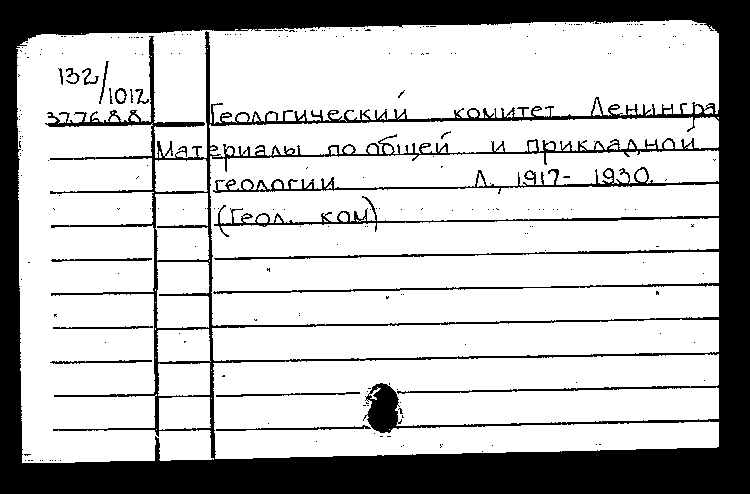 132/1012
37.76.8.8 Геологический комитет. Ленингра
Материалы по общей и прикладной
геологии Л., 1917- 1930.
(Геол. ком)